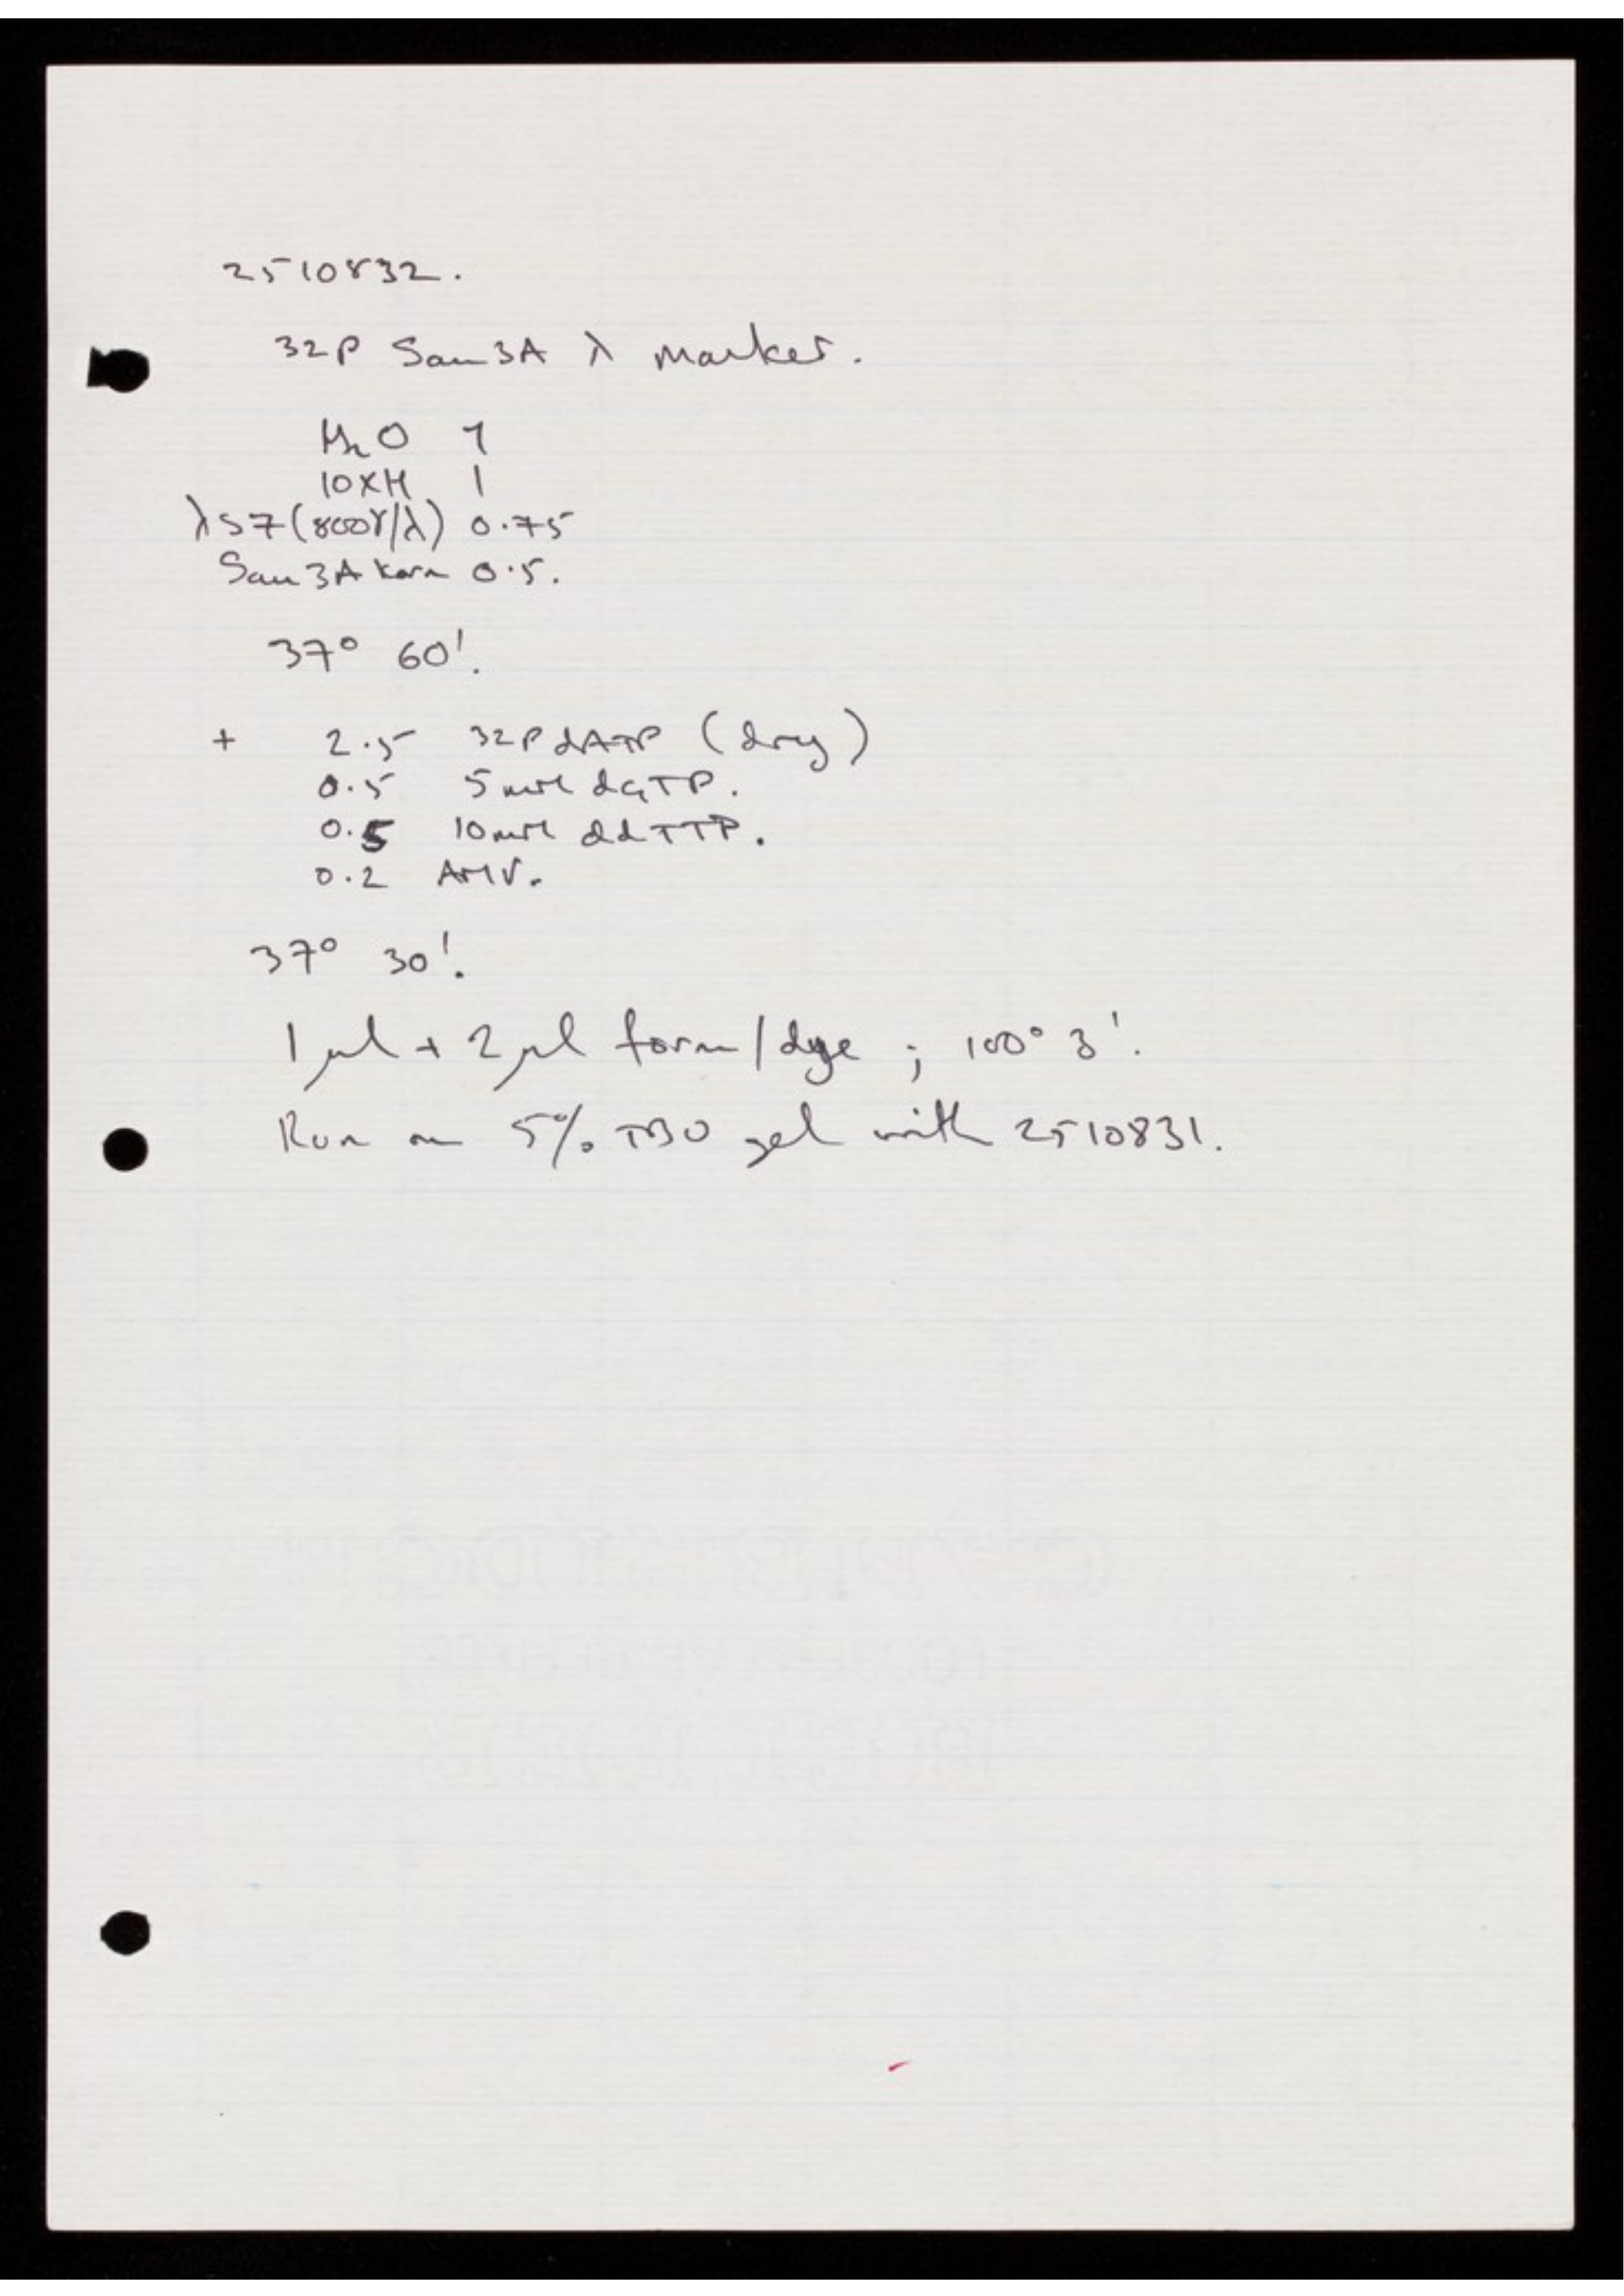 2510832.
32P Sau3A λ marker.
H2O 7
10xH 1
λS7(800γ/λ) 0.75
Sau3A Karn 0.5.
37° 60'.
+ 2.5 32PdATP (dry)
0.5 5mM dGTP.
0.5 10mM ddTTP.
0.2 AMV.
37° 30'.
1μl + 2μl form/dye ; 100° 3'.
Run on 5% gel with 2510831.